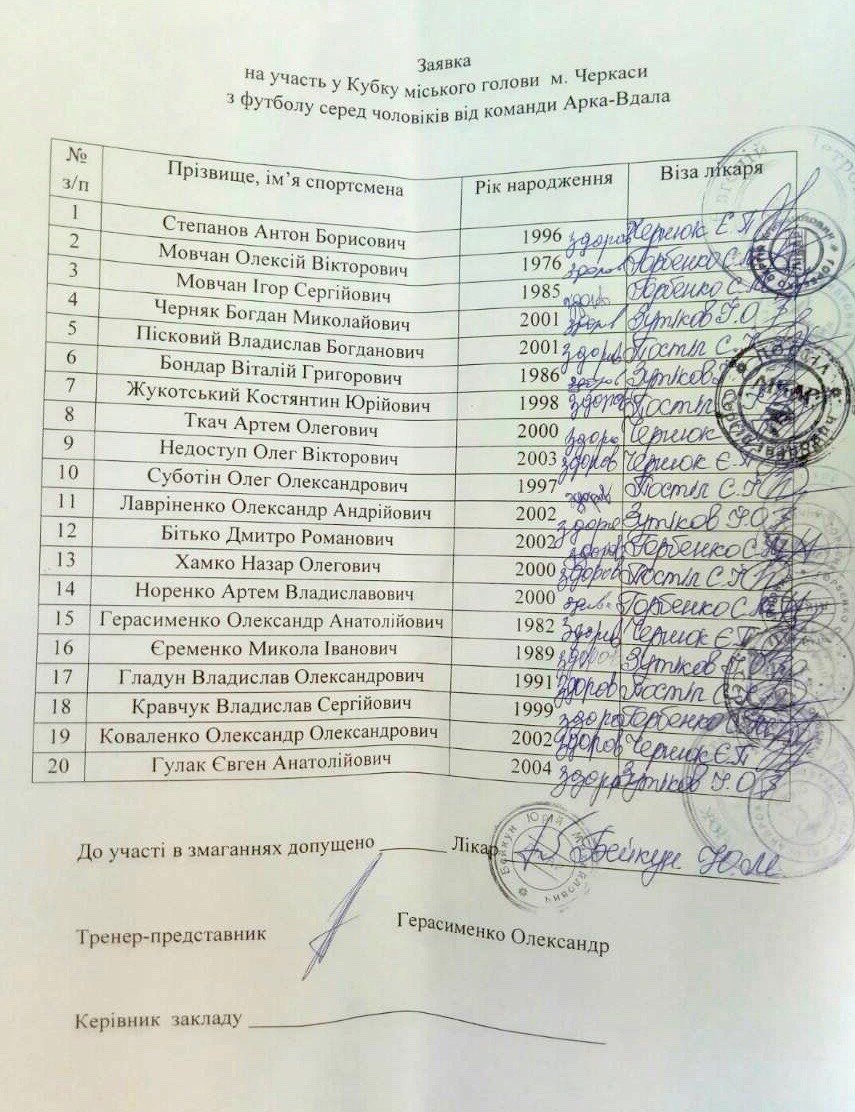 Заявка
на участь у Кубку міського голови м. Черкаси
з футболу серед чоловіків від команди Арка-Вдала
№ з/п Прізвище, ім’я спортсмена Рік народження Віза лікаря
1 Степанов Антон Борисович 1996 здоров Чернюк Є.П
2 Мовчан Олексій Вікторович 1976 здоров Горбенко С.М
3 Мовчан Ігор Сергійович 1985 здоров Горбенко С.М
4 Черняк Богдан Миколайович 2001 здоров Зутіков Г.О
5 Пісковий Владислав Богданович 2001 здоров Постіл С.
6 Бондар Віталій Григорович 1986 здоров Зутіков
7 Жукотський Костянтин Юрійович 1998 здоров Постіл С.
8 Ткач Артем Олегович 2000 здоро Чернюк
9 Недоступ Олег Вікторович 2003 здоров Чернюк Є.П
10 Суботін Олег Олександрович 1997 здоров Постіл С.
11 Лавріненко Олександр Андрійович 2002 здоров Зутіков Г.О
12 Бітько Дмитро Романович 2002 здоров Горбенко С.М
13 Хамко Назар Олегович 2000 здоров Постіл С.
14 Норенко Артем Владиславович 2000 Горбенко С.М
15 Герасименко Олександр Анатолійович 1982 здоров Чернюк Є.П
16 Єременко Микола Іванович 1989 здоров Зутіков Г.О
17 Гладун Владислав Олександрович 1991 здоров Постіл С.
18 Кравчук Владислав Сергійович 1999 здоро Горбенко С
19 Коваленко Олександр Олександрович 2002 здоров Чернюк Є.П
20 Гулак Євген Анатолійович 2004 здоро Зутіков Г.О
До участі в змаганнях допущено ______ Лікар Бейкун Ю.М
Тренер-представник Герасименко Олександр
Керівник закладу